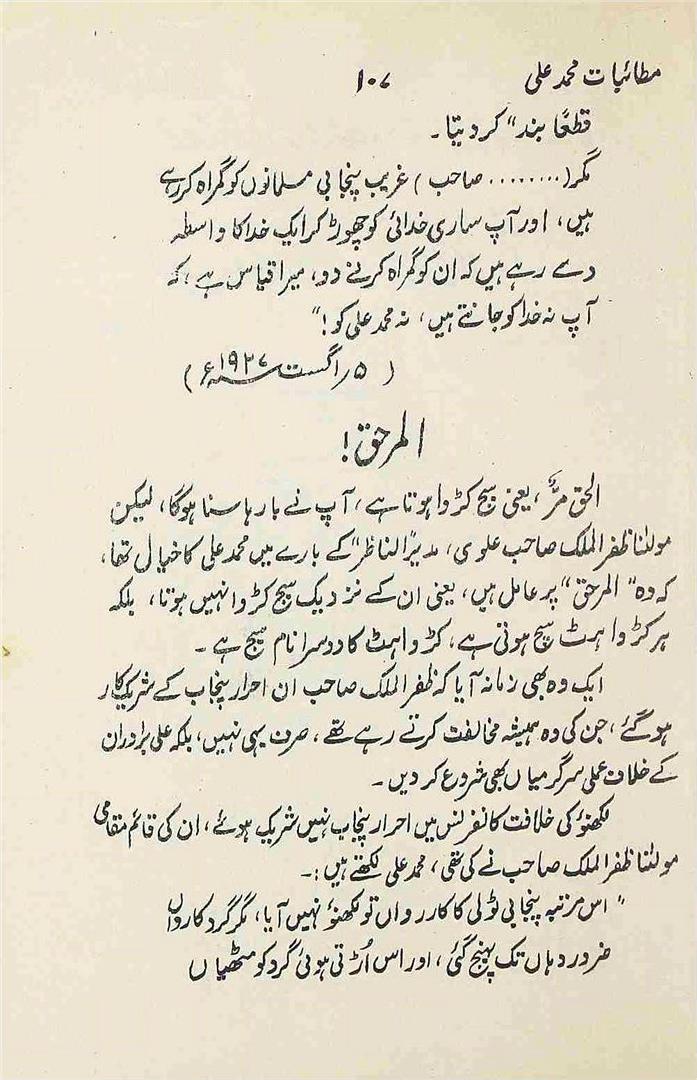 مطائبات محمد علی ۱۰۷
قطعًا بند” کر دیتا۔
مگر (........ صاحب) غریب پنجابی مسلمانوں کو گمراہ کر رہے
ہیں، اور آپ ساری خدائی کو چھوڑ کر ایک خدا کا واسطہ
دے رہے ہیں کہ ان کو گمراہ کرنے دو، میرا قیاس ہے، کہ
آپ نہ خدا کو جانتے ہیں، نہ محمد علی کو!“
(۵ر اگست ۱۹۲۷ء)
المرحق!
الحق مرٌّ، یعنی سچ کڑوا ہوتا ہے، آپ نے بارہا سنا ہوگا، لیکن
مولٰنا ظفر الملک صاحب علوی، مدیر ”الناظر“ کے بارے میں محمد علی کا خیال تھا،
کہ وہ ”المرحق“ پر عامل ہیں، یعنی ان کے نزدیک سچ کڑوا نہیں ہوتا، بلکہ
ہر کڑواہٹ سچ ہوتی ہے، کڑواہٹ کا دوسرا نام سچ ہے۔
ایک وہ بھی زمانہ آیا کہ ظفر الملک صاحب ان احرار پنجاب کے شریک کار
ہو گئے، جن کی وہ ہمیشہ مخالفت کرتے رہے تھے، صرف یہی نہیں، بلکہ علی برادران
کے خلاف عملی سرگرمیاں بھی شروع کر دیں۔
لکھنؤ کی خلافت کانفرنس میں احرار پنجاب نہیں شریک ہوئے، ان کی قائم مقامی
مولٰنا ظفر الملک صاحب نے کی تھی، محمد علی لکھتے ہیں:۔
”اس مرتبہ پنجابی ٹولی کا کارواں تو لکھنؤ نہیں آیا، مگر گرد کارواں
ضرور وہاں تک پہنچ گئی، اور اس اُڑتی ہوئی گرد کو مٹھیاں